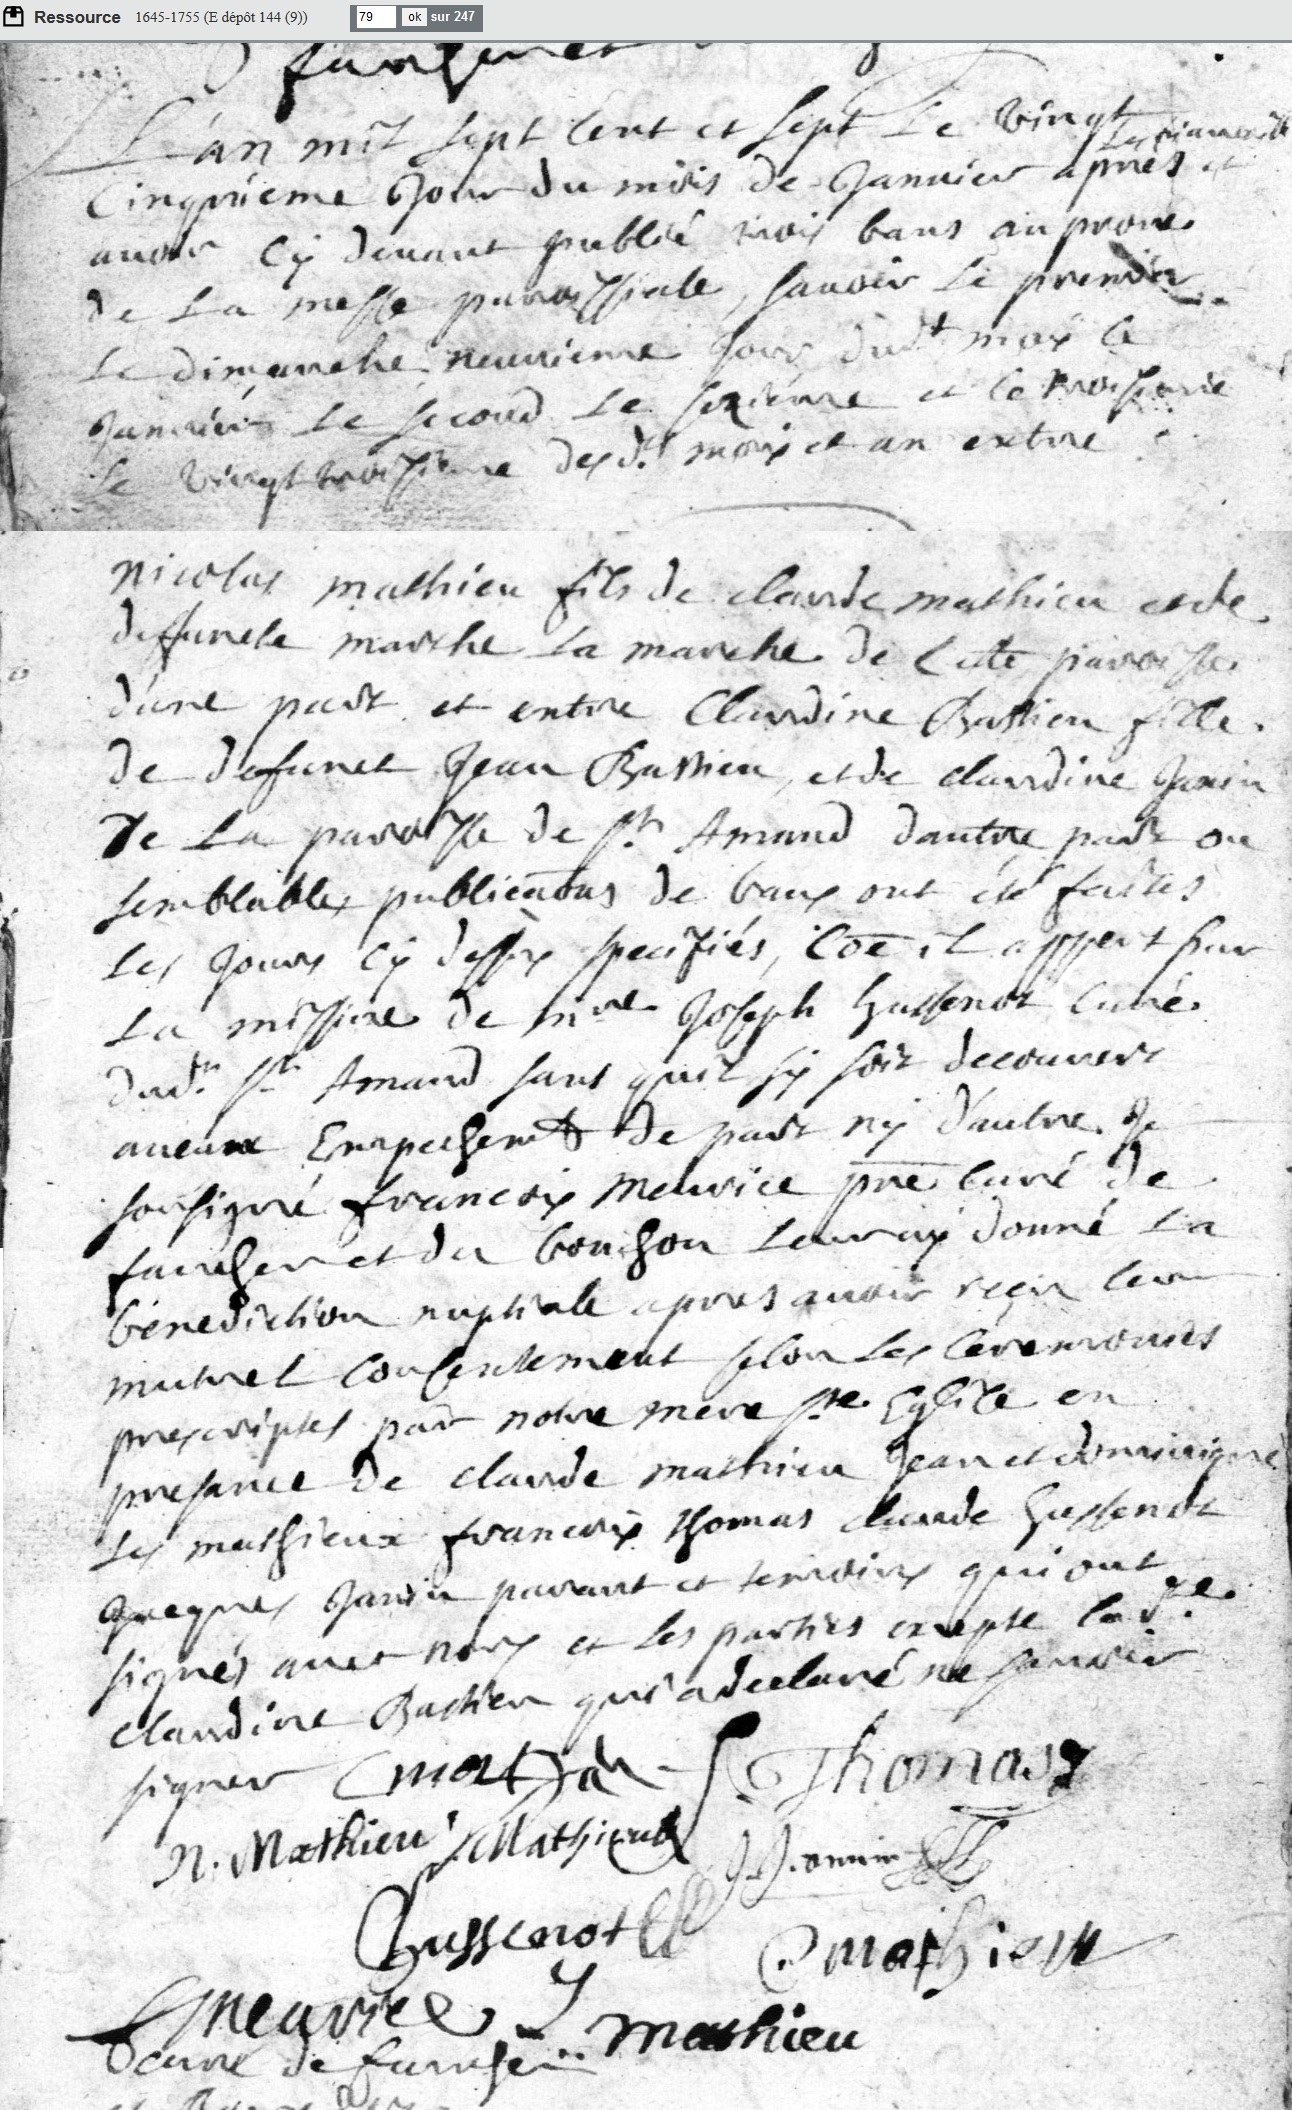 Ressource 1645-1755 (E dépôt 144 (9)) 79 ok sur 247
L'an mil sept cent et sept le vingt
Cinqvieme Jour du mois de Janvier apres et
avoir Cy devant publié trois bans au prone
de La messe paroissiale, savoir le premier
Le dimanche neuvieme Jour dudt mois Ce
Janvier Le second Le sezieme et Ce troisieme
Le vingt troisieme desd. mois et an entre
nicolas mathieu fils de claude mathieu et de
deffuncte marthe La marche de Cette paroisse
d'une part et entre Claudine Bastien fille
de defunct Jean Bastien, et de claudine Janin
De La paroisse de st. Amand dautre part ou
semblables publications de bans ont été faites
Les Jours Cy dessus specifiés, Coe il appert par
La missive de mre Joseph hussenot Curé
dud. st Amand sans quil sy soit decouvert
aucune Empechemt de part ny d'autre Je
sousigné francois meurice pre curé de
fauchere et du bouchon Leur ay donné La
bénediction nuptiale apres avoir reçu leur
mutuel Consentement selon Les Céremonies
prescriptes par notre mere ste Eglise en
presance de claude mathieu Jean et dominique
Les mathieux francois thomas claude hussenot
Jacques Janin parant et temoins qui ont
signés avec nous et les parties exepte lad.te
claudine Bastien qui a declaré ne savoir
signer
Thomas
N. Mathieu J Mathieu
Chussenot
C mathieu
Meurice
mathieu
curé de